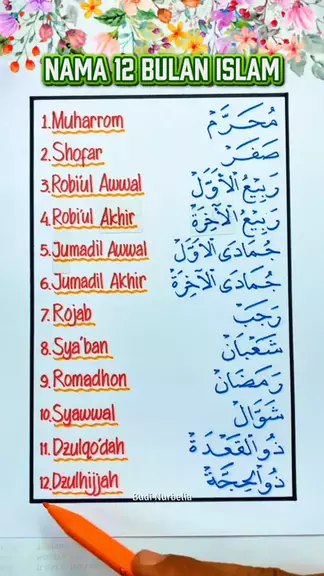 NAMA 12 BULAN ISLAM
1. Muharrom مُحَرَّمْ
2. Shofar صَفَرْ
3. Robi'ul Awwal رَبِيْعُ الْأَوَّلْ
4. Robi'ul Akhir رَبِيْعُ الْآخِرَةْ
5. Jumadil Awwal جُمَادَى الْأَوَّلْ
6. Jumadil Akhir جُمَادَى الْآخِرَةْ
7. Rojab رَجَبْ
8. Sya'ban شَعْبَانْ
9. Romadhon رَمَضَانْ
10. Syawwal شَوَّالْ
11. Dzulqo'dah ذُو الْقَعْدَةْ
12. Dzulhijjah ذُو الْحِجَّةْ
Budi Nurdelia